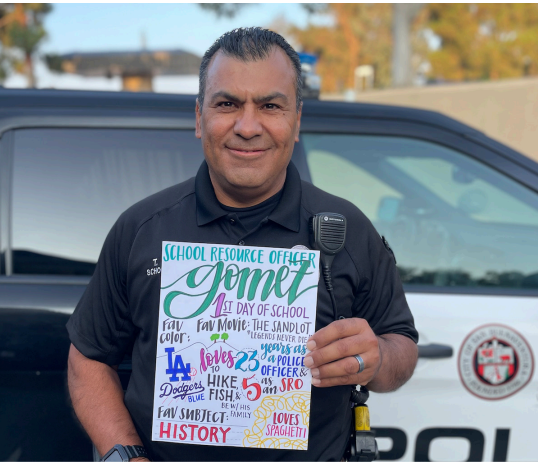 SCHOOL RESOURCE OFFICER
gomet
1ST DAY OF SCHOOL
FAV COLOR:
Dodgers
BLUE
FAV MOVIE: THE SANDLOT
"LEGENDS NEVER DIE
LA
loves
TO
HIKE
FISH, &
BE W/ HIS
FAMILY
23 years as
a POLICE
OFFICER &
5 as
an SRO
FAV SUBJECT:
HISTORY
LOVES
SPAGHETTI
T.
SCHO
POL